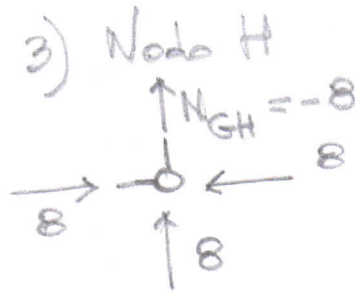 3) Nodo H
N_GH = -8
8
8
8